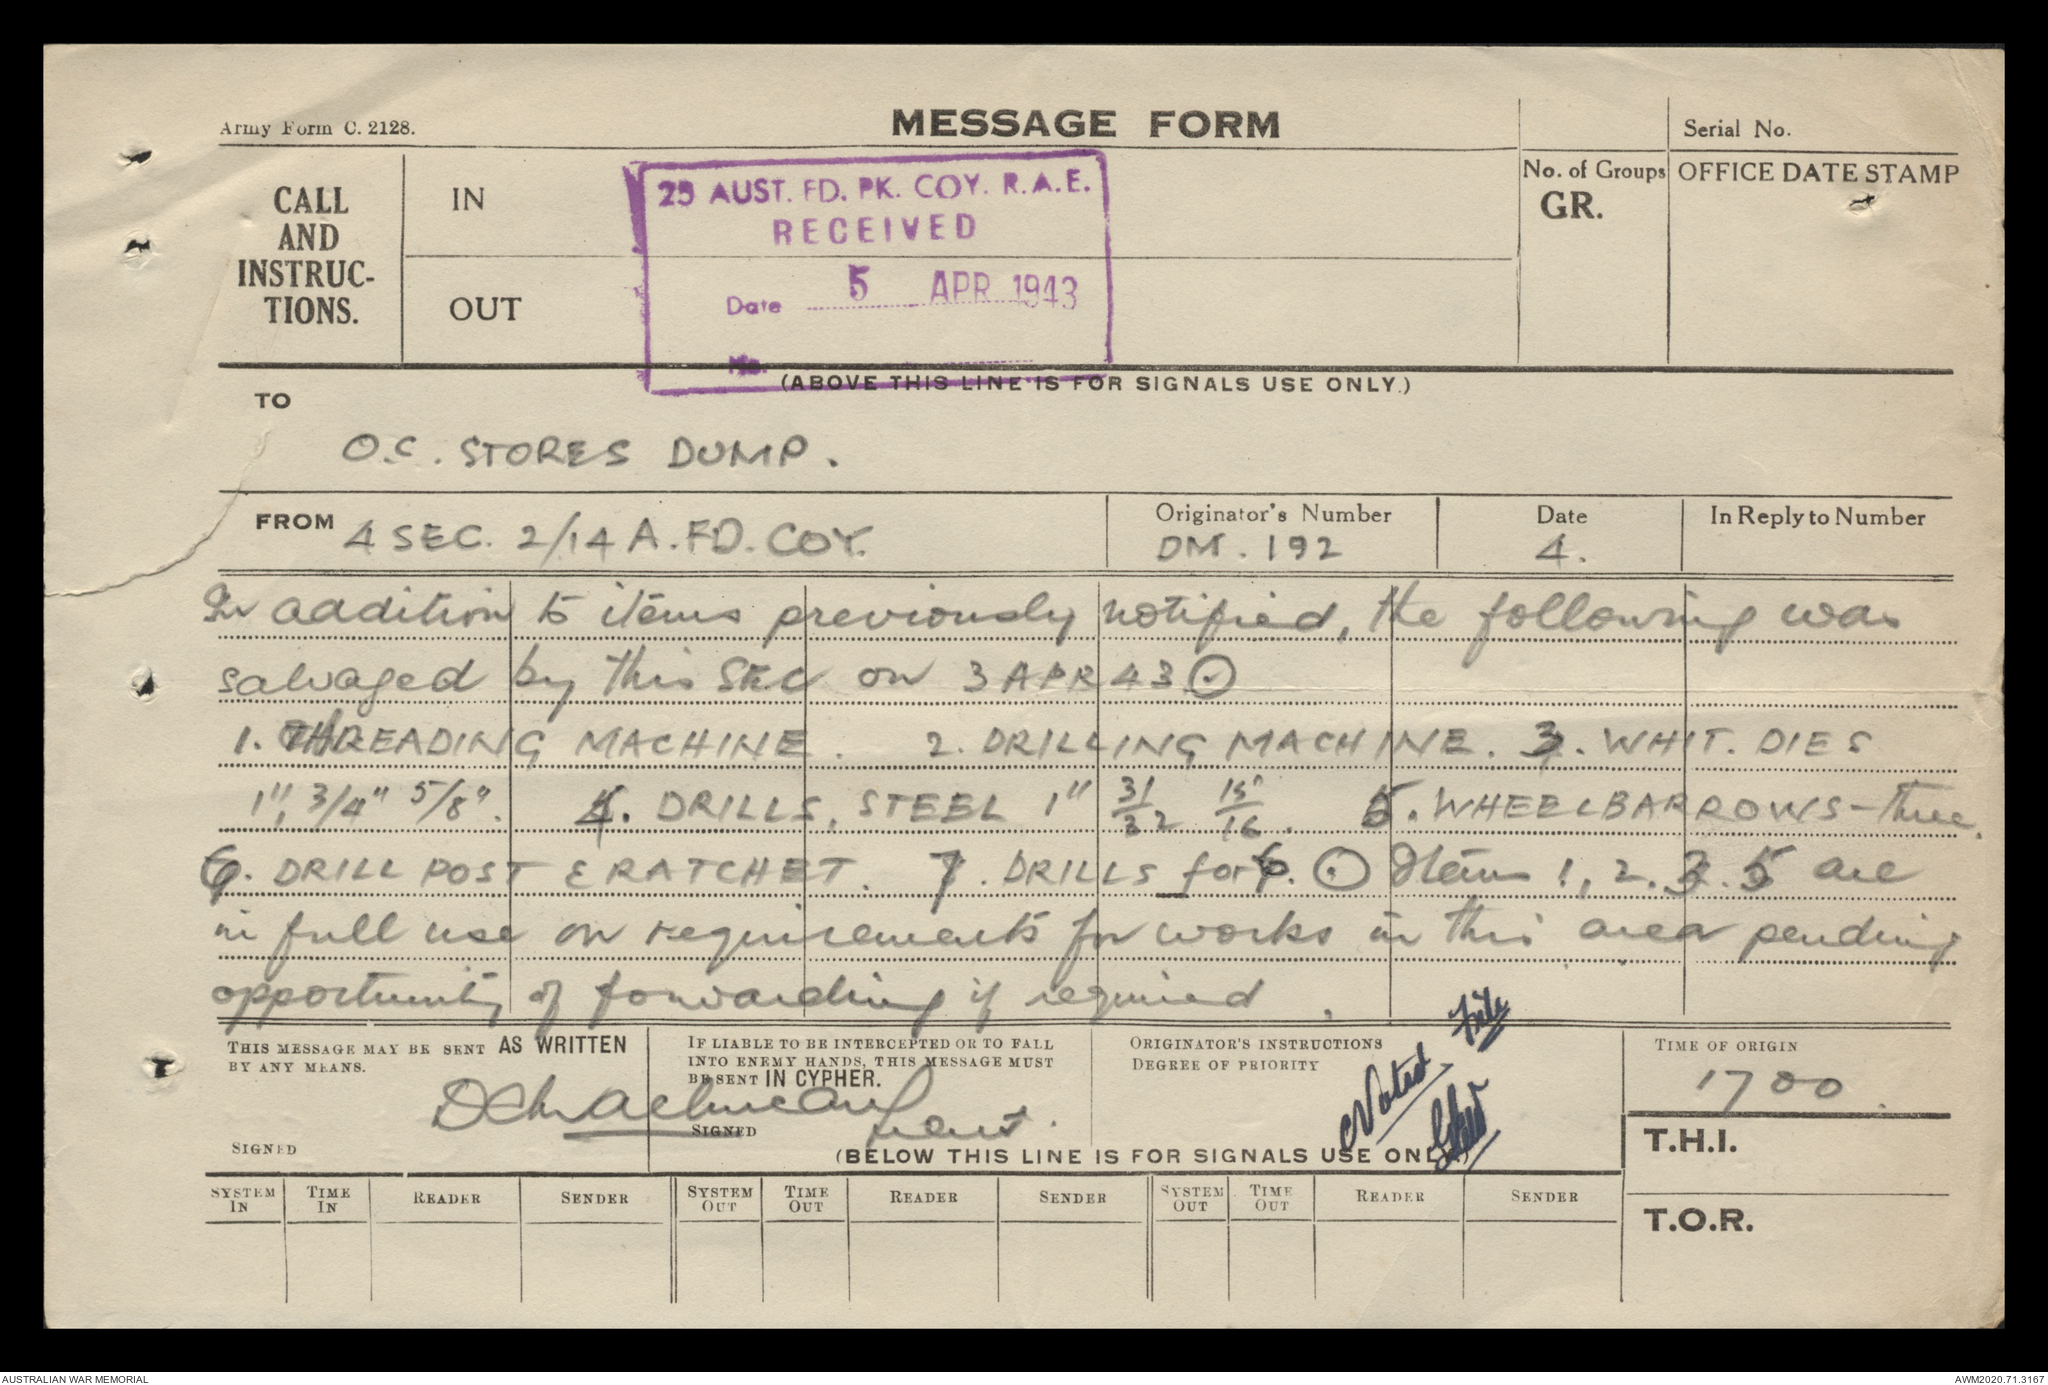 Army Form C. 2128.
MESSAGE FORM
Serial No.
CALL
AND
INSTRUC-
TIONS.
IN
OUT
No. of Groups
GR.
OFFICE DATE STAMP
25 AUST. FD. PK. COY. R.A.E.
RECEIVED
Date 5 APR 1943
No.
(ABOVE THIS LINE IS FOR SIGNALS USE ONLY.)
TO
O.C. STORES DUMP.
FROM 4 SEC. 2/14 A. FD. COY.
Originator's Number
DM. 192
Date
4.
In Reply to Number
In addition to items previously notified, the following was
salvaged by this Sec on 3 APR 43 ⊙
1. THREADING MACHINE. 2. DRILLING MACHINE. 3. WHIT. DIES
1", 3/4" 5/8". 4. DRILLS, STEEL 1" 31/32 15/16. 5. WHEELBARROWS - three.
6. DRILL POST & RATCHET. 7. DRILLS for 6. ⊙ Items 1, 2. 3. 5 are
in full use on requirements for works in this area pending
opportunity of forwarding if required.
THIS MESSAGE MAY BE SENT AS WRITTEN
BY ANY MEANS.
SIGNED
IF LIABLE TO BE INTERCEPTED OR TO FALL
INTO ENEMY HANDS, THIS MESSAGE MUST
BE SENT IN CYPHER.
SIGNED
Lieut.
ORIGINATOR'S INSTRUCTIONS
DEGREE OF PRIORITY
Noted
File
TIME OF ORIGIN
1700.
(BELOW THIS LINE IS FOR SIGNALS USE ONLY.)
T.H.I.
T.O.R.
SYSTEM IN TIME IN READER SENDER SYSTEM OUT TIME OUT READER SENDER SYSTEM OUT TIME OUT READER SENDER
AUSTRALIAN WAR MEMORIAL
AWM2020.71.3167